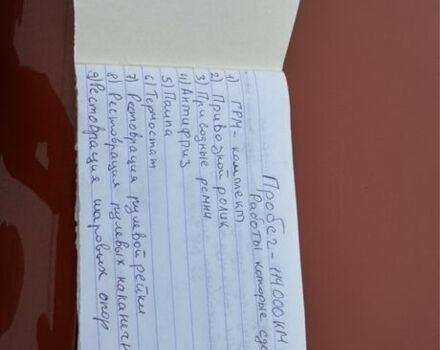 Пробег - 114000 КМ
Работы которые
1) ГРМ - комплект
2) Приводной ролик
3) Приводные ремни
4) Антифриз
5) Помпа
6) Термостат
7) Рестоврация рулевой рейки
8) Рестоврация рулевых
9) Рестоврация шаровых опор